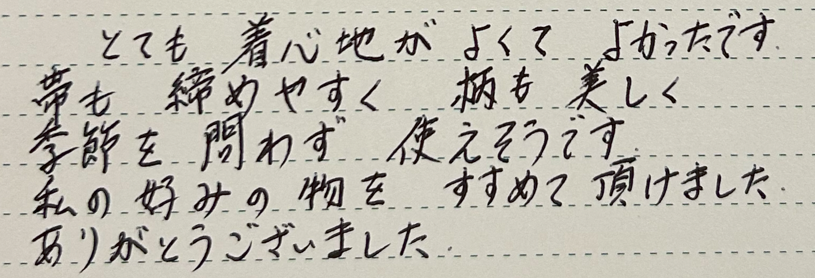 とても 着心地が よくて よかったです.
帯も 締めやすく 柄も 美しく
季節を 問わず 使えそうです.
私の 好みの 物を すすめて 頂けました.
ありがとうございました.